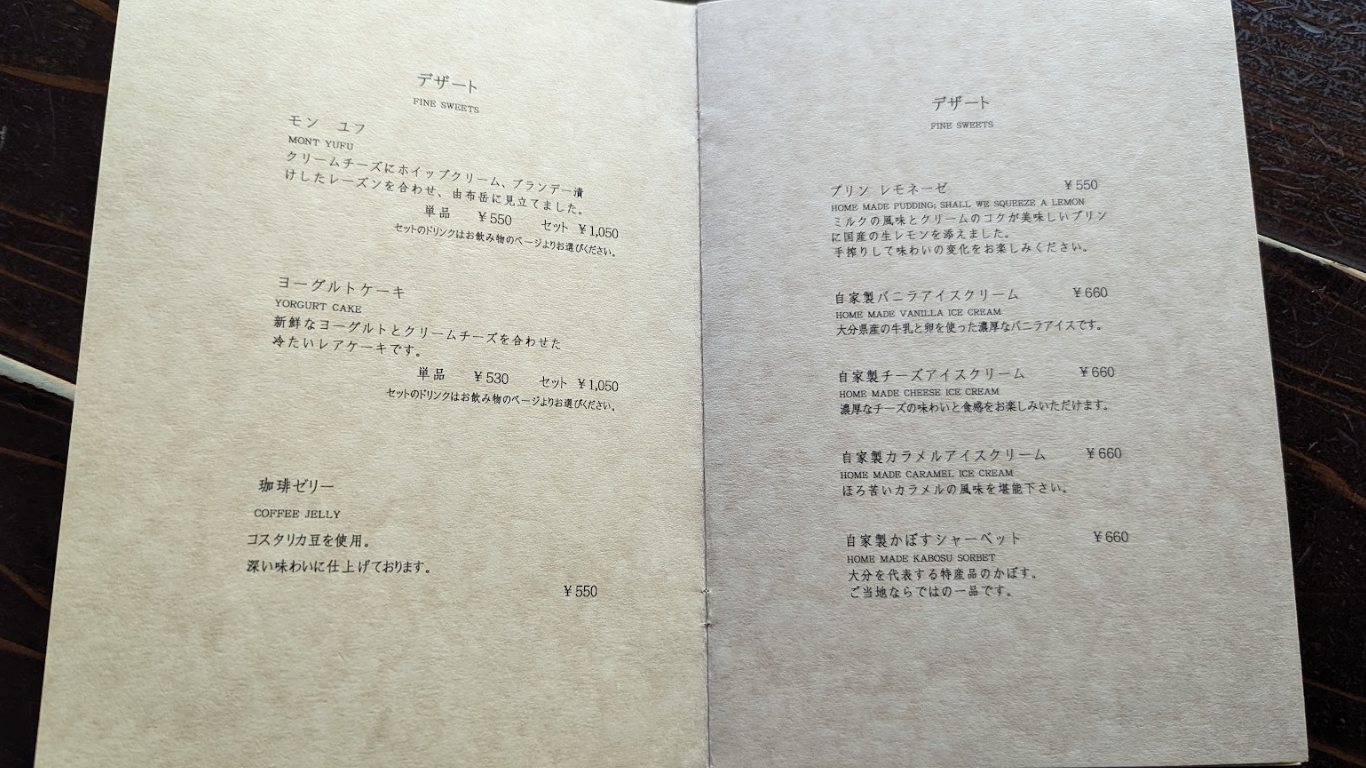 デザート
FINE SWEETS
モン ユフ
MONT YUFU
クリームチーズにホイップクリーム、ブランデー漬
けしたレーズンを合わせ、由布岳に見立てました。
単品 ¥550 セット ¥1,050
セットのドリンクはお飲み物のページよりお選びください。
ヨーグルトケーキ
YORGURT CAKE
新鮮なヨーグルトとクリームチーズを合わせた
冷たいレアケーキです。
単品 ¥530 セット ¥1,050
セットのドリンクはお飲み物のページよりお選びください。
珈琲ゼリー
COFFEE JELLY
コスタリカ豆を使用。
深い味わいに仕上げております。
¥550
デザート
FINE SWEETS
プリン レモネーゼ ¥550
HOME MADE PUDDING; SHALL WE SQUEEZE A LEMON
ミルクの風味とクリームのコクが美味しいプリン
に国産の生レモンを添えました。
手搾りして味わいの変化をお楽しみください。
自家製バニラアイスクリーム ¥660
HOME MADE VANILLA ICE CREAM
大分県産の牛乳と卵を使った濃厚なバニラアイスです。
自家製チーズアイスクリーム ¥660
HOME MADE CHEESE ICE CREAM
濃厚なチーズの味わいと食感をお楽しみいただけます。
自家製カラメルアイスクリーム ¥660
HOME MADE CARAMEL ICE CREAM
ほろ苦いカラメルの風味を堪能下さい。
自家製かぼすシャーベット ¥660
HOME MADE KABOSU SORBET
大分を代表する特産品のかぼす。
ご当地ならではの一品です。